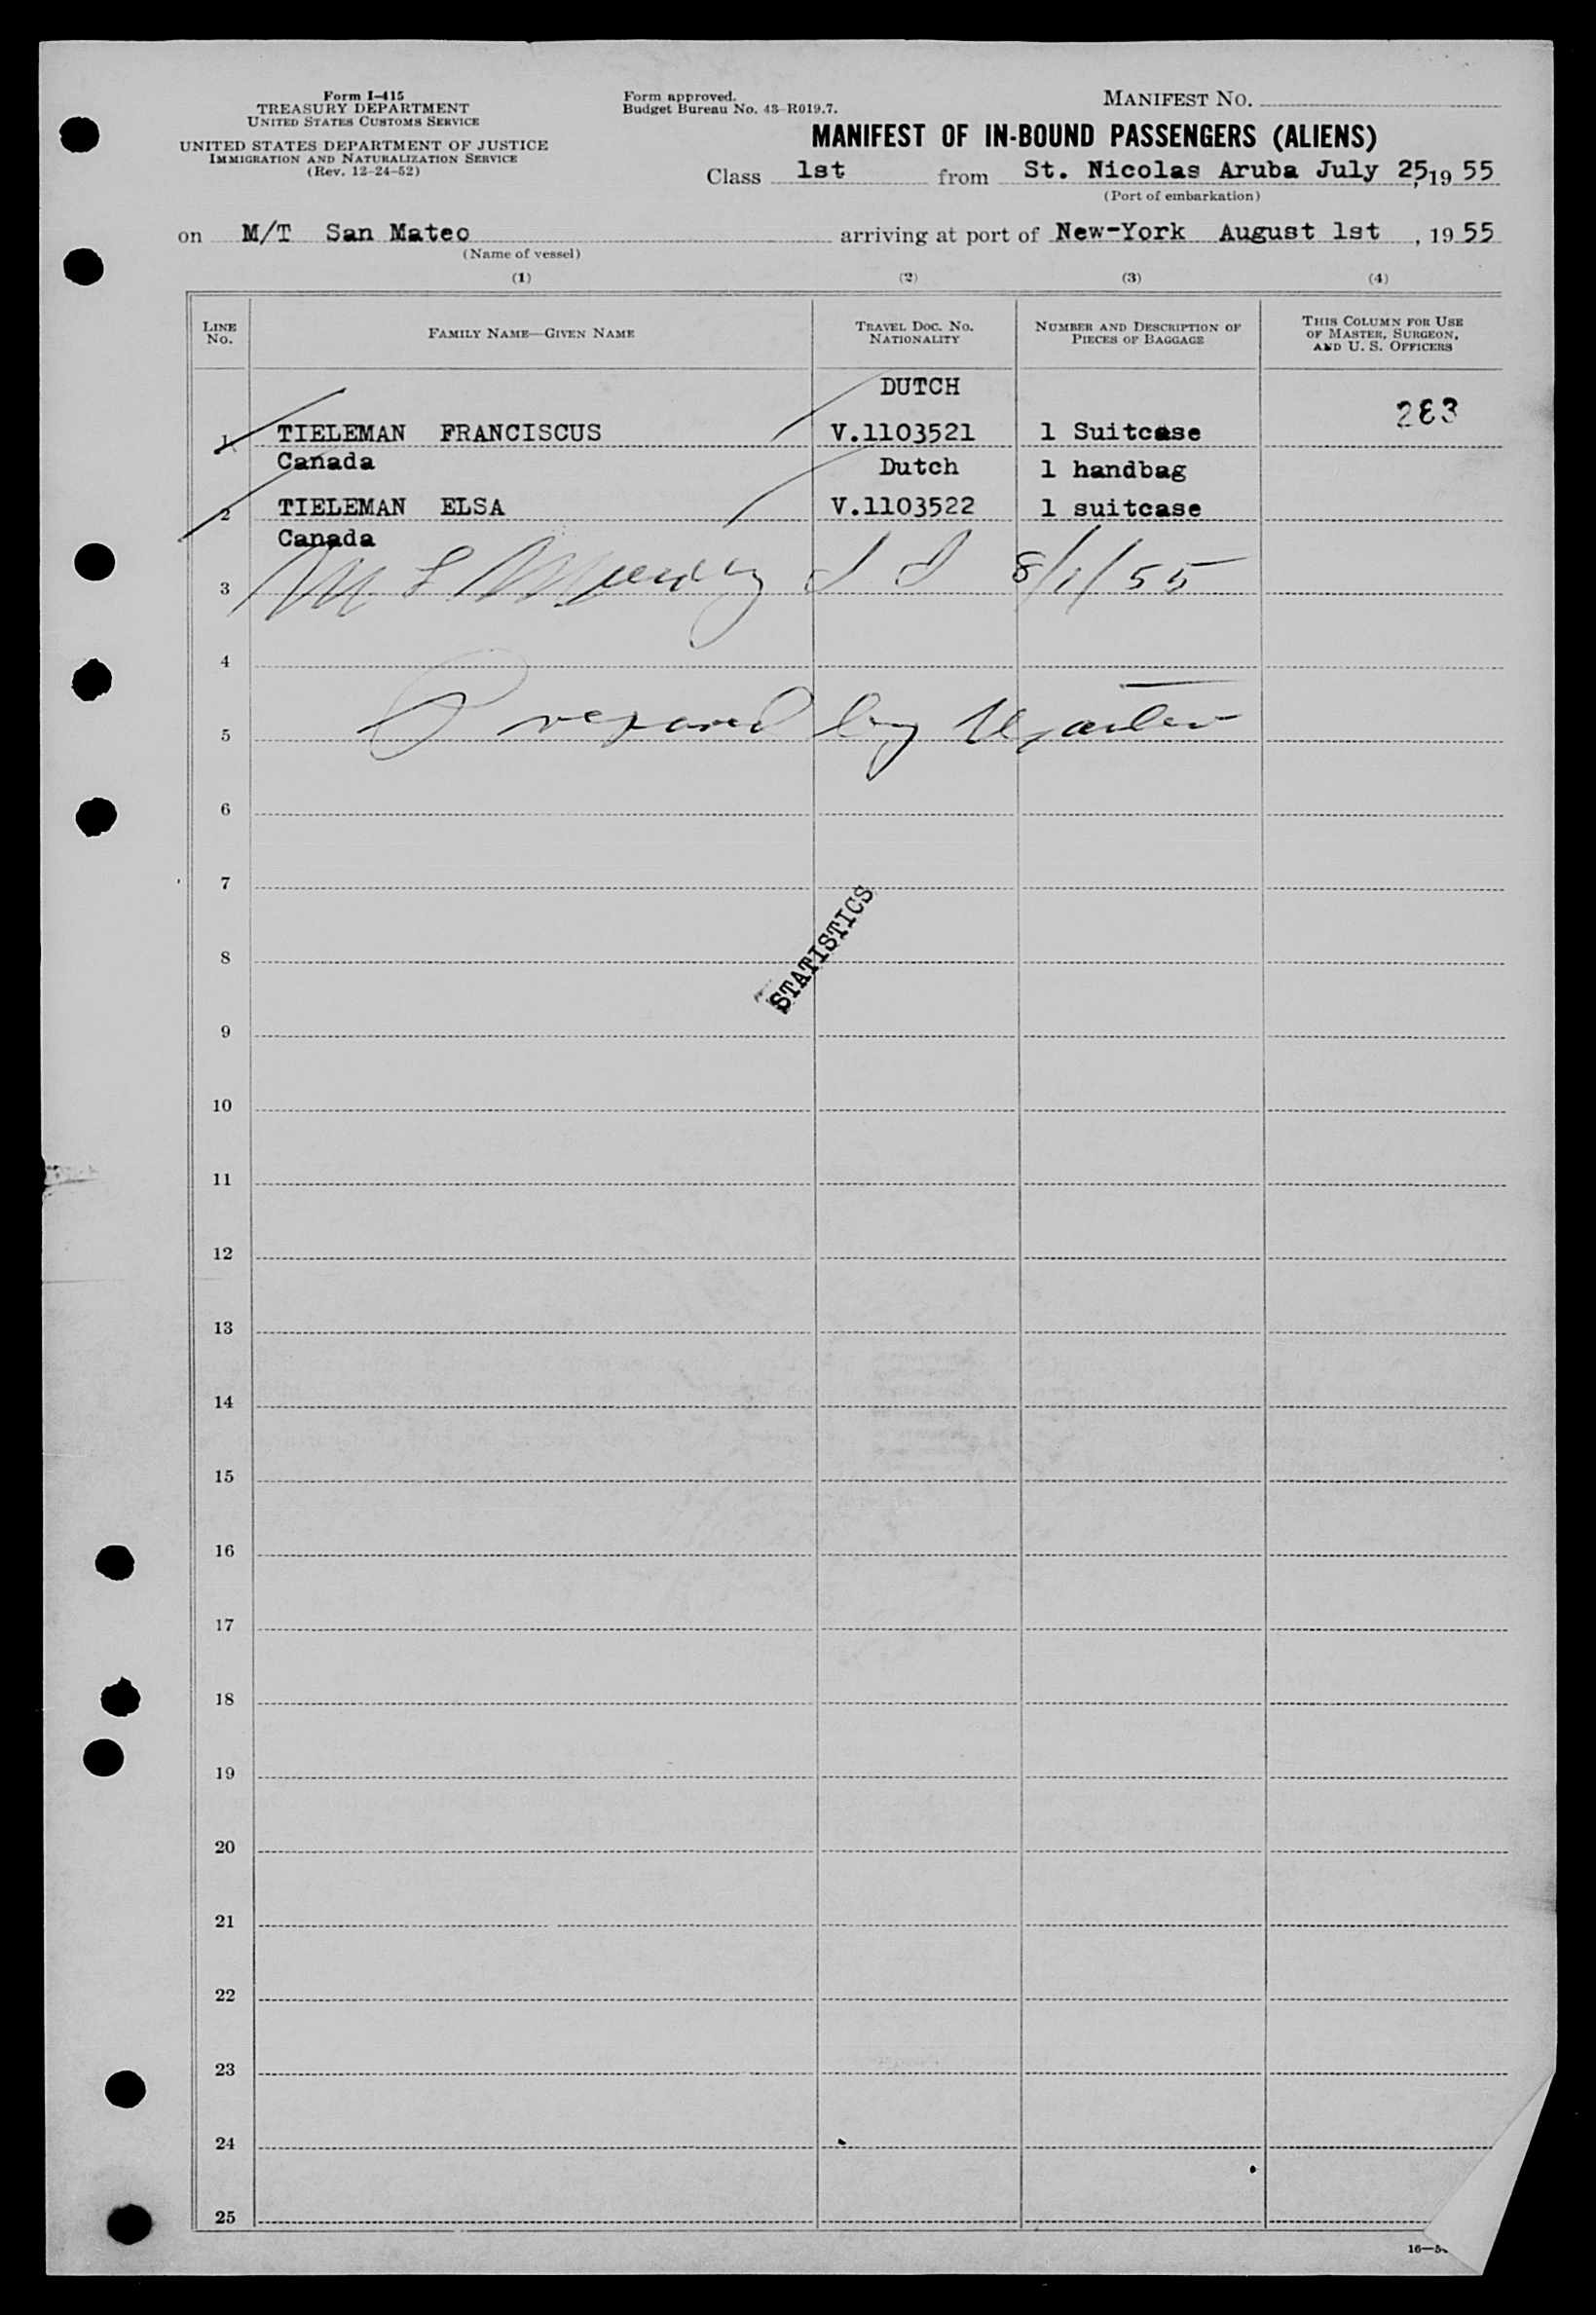 Form I-415
TREASURY DEPARTMENT
UNITED STATES CUSTOMS SERVICE
UNITED STATES DEPARTMENT OF JUSTICE
IMMIGRATION AND NATURALIZATION SERVICE
(Rev. 12-24-52)
Form approved.
Budget Bureau No. 43-R019.7.
MANIFEST NO.
MANIFEST OF IN-BOUND PASSENGERS (ALIENS)
Class 1st from St. Nicolas Aruba July 25, 19 55
(Port of embarkation)
on M/T San Mateo arriving at port of New-York August 1st, 19 55
(Name of vessel)
(1) (2) (3) (4)
LINE NO. FAMILY NAME—GIVEN NAME TRAVEL DOC. NO. NATIONALITY NUMBER AND DESCRIPTION OF PIECES OF BAGGAGE THIS COLUMN FOR USE OF MASTER, SURGEON, AND U. S. OFFICERS
DUTCH
283
1 TIELEMAN FRANCISCUS V.1103521 1 Suitcase
Canada Dutch 1 handbag
2 TIELEMAN ELSA V.1103522 1 suitcase
Canada
3 8/1/55
4
5 Prepared by Master
6
7
STATISTICS
8
9
10
11
12
13
14
15
16
17
18
19
20
21
22
23
24
25